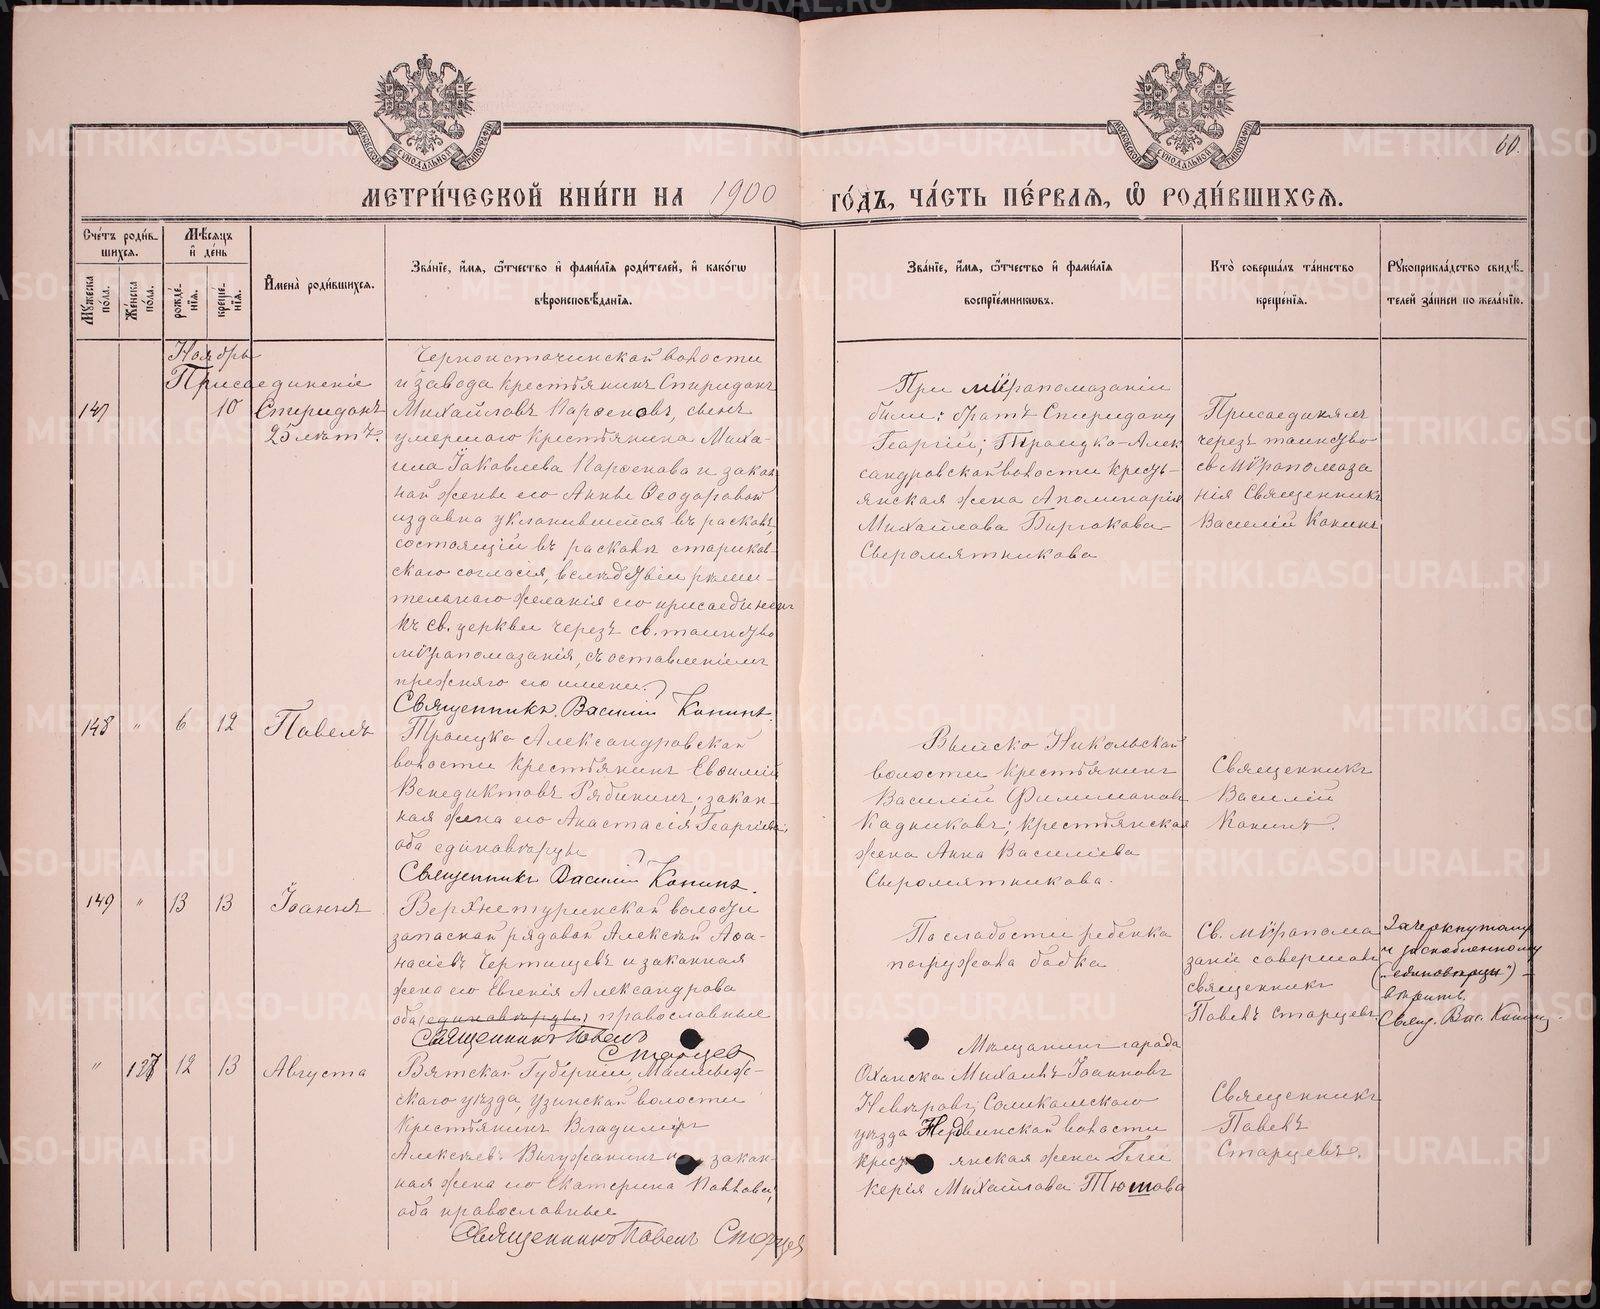 60.
МЕТРИ́ЧЕСКОЙ КНИ́ГИ НА 1900 ГО́ДЪ, ЧА́СТЬ ПЕ́РВАЯ, Ѡ҆ РОДИ́ВШИХСЯ.
Сче́тъ роди́в-
шихся.
Мꙋ́жеска по́ла.
Же́нска по́ла.
Мѣ́сяцъ
и҆ де́нь
рожде́нїя.
креще́нїя.
И҆мена̀ роди́вшихся.
Зва́нїе, и҆́мя, ѻ҆́тчество и҆ фами́лїя роди́телей, и҆ како́гѡ
вѣроисповѣ́данїя.
Зва́нїе, и҆́мя, ѻ҆́тчество и҆ фами́лїя
воспрїе́мниковъ.
Кто̀ соверша́лъ та́инство
креще́нїя.
Рꙋкоприкла́дство свидѣ́-
телей за́писи по жела́нїю.
Ноябрь
Присоединеніе
147
10
Спиридонъ
25 лѣтъ.
Черноисточинской волости
и завода крестьянинъ Спиридонъ
Михайловъ Парѳеновъ, сынъ
умершаго крестьянина Миха-
ила Іаковлева Парѳенова и закон
ной жены его Анны Ѳеодоровой
издавна уклонившейся въ расколъ,
состоящій въ расколѣ стариков-
скаго согласія, вслѣдствіи рѣши-
тельнаго желанія его присоединенъ
къ св. церкви чрезъ св. таинство
мѵропомазанія, съ оставленіемъ
прежняго его имени.
Священникъ Василій Конинъ.
При мѵропомазаніи
были: братъ Спиридону
Георгій; Троицко-Алек
сандровской волости кресть-
янская жена Аполинарія
Михайлова Бирюкова-
Сыромятникова
Присоединялъ
чрезъ таинство
св. Мѵропомаза
нія Священникъ
Василій Конинъ
148
"
6
12
Павелъ
Троицко Александровской
волости крестьянинъ Евѳимій
Венедиктовъ Рябининъ; закон-
ная жена его Анастасія Георгіева,
оба единовѣрцы
Священникъ Василій Конинъ.
Выйско Никольской
волости крестьянинъ
Василій Филимоновъ
Кадниковъ; крестьянская
жена Анна Василіева
Сыромятникова.
Священникъ
Василій
Конинъ.
149
"
13
13
Іоаннъ
Верхнетуринской волости
запасной рядовой Алексѣй Аѳа-
насіевъ Чертищевъ и законная
жена его Евгенія Александрова
оба (единовѣрцы) православные
Священникъ Павелъ
Старцев
По слабости ребенка
погружала бабка
Св. мѵропома
заніе совершалъ
священникъ
Павелъ Старцевъ.
Зачеркнутому
и заскобленному
("единовѣрцы") -
вѣрить.
Свящ. Вас. Конинъ.
"
127
12
13
Августа
Вятской Губерніи, Малмыж-
скаго уѣзда, узинской волости
крестьянинъ Владиміръ
Алексѣев. Вычужанинъ и закон-
ная жена его Екатерина Павлова,
оба православные
Священникъ Павелъ Старцев
Мѣщанинъ города
Оханска Михаилъ Іоанновъ
Невѣровъ; Соликамскаго
уѣзда волости
крестьянская жена Гли
керія Михайлова Тюшова
Священникъ
Павелъ
Старцевъ.